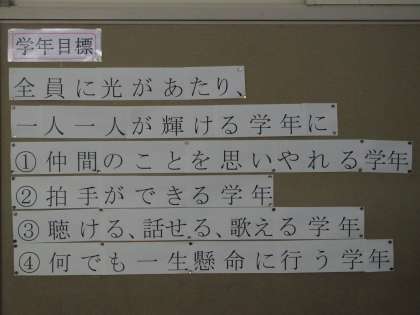 学年目標
全員に光があたり、
一人一人が輝ける学年に
①仲間のことを思いやれる学年
②拍手ができる学年
③聴ける、話せる、歌える学年
④何でも一生懸命に行う学年